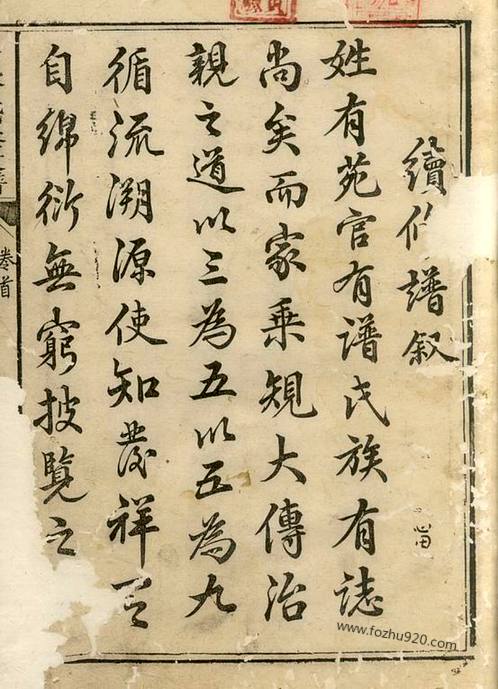 續修譜叙
姓有苑官有譜氏族有誌
尚矣而家乗規大傳治
親之道以三為五以五為九
循流溯源使知發祥之
自綿衍無窮披覽之
卷首
www.fozhu920.com